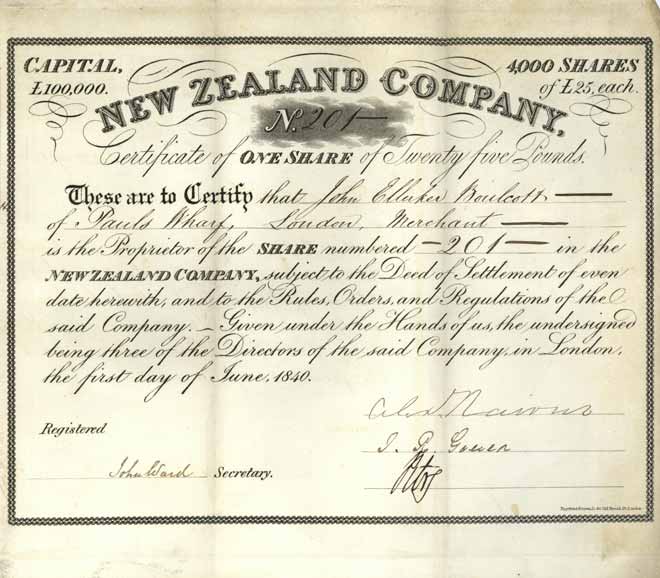 CAPITAL, 4,000 SHARES
£100,000. of £25, each.
NEW ZEALAND COMPANY,
N. 201
Certificate of ONE SHARE of Twenty five Pounds.
These are to Certify that John Ellerker Boulcott
of Pauls Wharf, London, Merchant
is the Proprietor of the SHARE numbered 201 in the
NEW ZEALAND COMPANY, subject to the Deed of Settlement of even
date herewith, and to the Rules, Orders, and Regulations of the
said Company. Given under the Hands of us, the undersigned
being three of the Directors of the said Company, in London,
the first day of June, 1840.
Alexr. Nairne
Registered
John Ward Secretary.